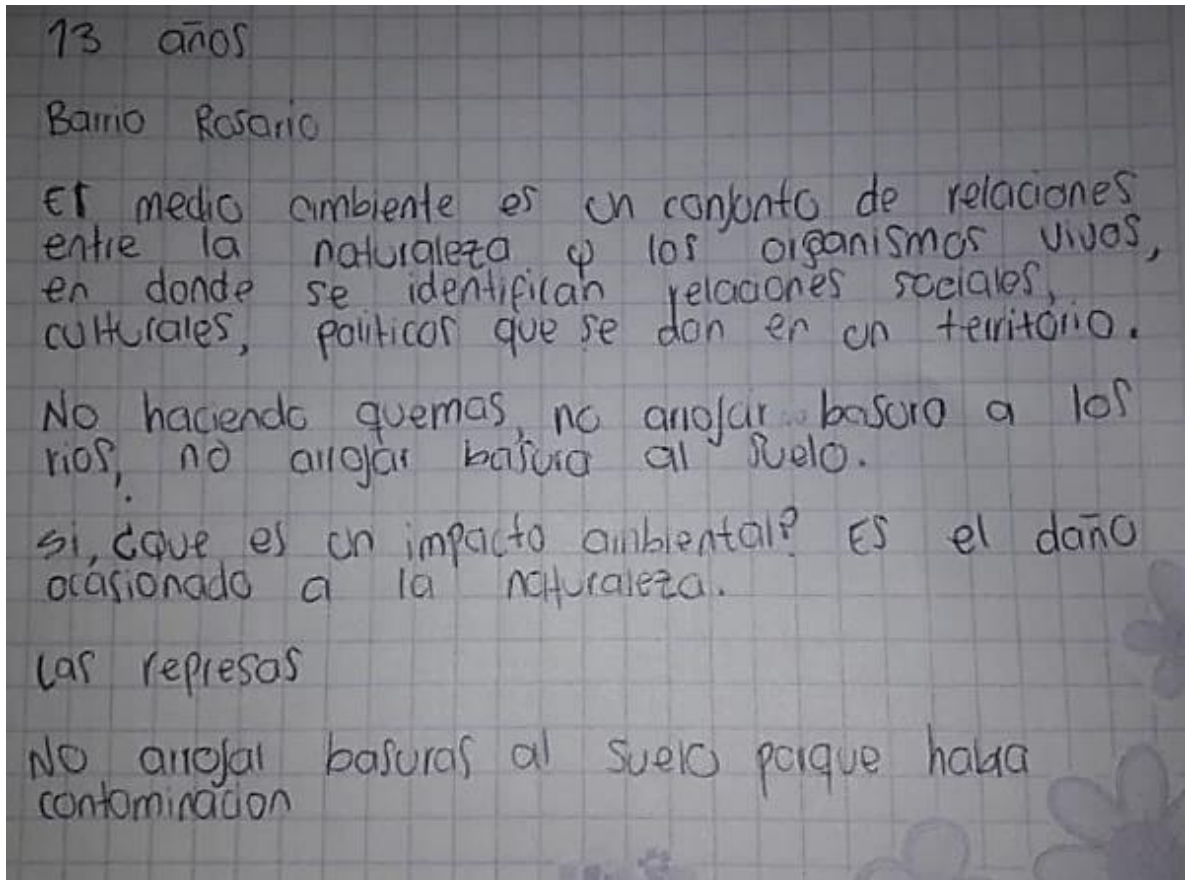 13 años
Barrio Rosario
El medio ambiente es un conjunto de relaciones
entre la naturaleza y los organismos vivos,
en donde se identifican relaciones sociales,
culturales, politicas que se dan en un territorio.
No haciendo quemas, no arrojar basura a los
rios, no arrojar basura al suelo.
si, ¿que es un impacto ambiental? Es el daño
ocasionado a la naturaleza.
Las represas
No arrojar basuras al suelo porque habra
contaminacion